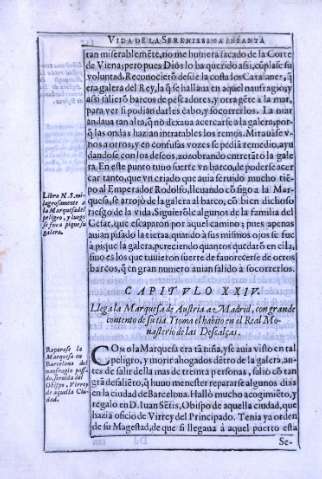 VIDA DE LA SERENISSIMA INFANTA
tan miserablemẽte, no me huuiera sacado de la Corte
de Viena; pero pues Dios lo ha querido assi, cũplase su
voluntad. Reconocierõ desde la costa los Catalanes, q̃
era galera del Rey, la q̃ se hallaua en aquel naufragio, y
assi salierõ barcos de pescadores, y otra gẽte a la mar,
para ver si podiã darles cabo, y socorrerlos. La mar
andaua tan alta, q̃ no dexaua acercarse a la galera, por-
que las ondas hazian intratables los remos. Mirauãse v-
nos a otros, y en confusas vozes se pedia remedio, ayu
dandose con los deseos,
En este punto tuuo suerte vn barco, de poderse acer
car tanto, que vn criado que auia seruido mucho tiẽ-
po al Emperador Rodolfo, lleuando cõsigo a la Mar-
quesa, se arrojò de la galera al barco, cõ bien dichoso
riesgo de la vida. Siguierõle algunos de la familia del
Cesar, que escaparon por aquel camino; pues apenas
auian pisado la tierra, quando à sus mismos ojos se fue
à pique la galera, pereciendo quantos quedarõ en ella,
sino es los que tuuieron suerte de fauorecerse de otros
barcos, q̃ en gran numero auian salido à socorrerlos.
Libro N. 8. mi-
lagrosamente a
la Marquesa del
peligro, y luego
se fue a pique la
galera.
CAPITVLO XXIV.
Llega la Marquesa de Austria a Madrid, con grande
contento de su tia. Y toma el habito en el Real Mo-
nasterio de las Descalças.
Reparose la
Marquesa en
Barcelona del
naufragio pas-
do, seruida del
Obispo, Virrey
de aquella Ciu-
dad.
COmo la Marquesa era tã niña, y se auia visto en tal
peligro, y muriẽ ahogados dentro de la galera, an-
tes de salir della mas de treinta personas, saliò cõ tan
grã desaliẽto, q̃ huuo menester repararse algunos dias
en la ciudad de Barcelona. Hallò mucho acogimiẽto, y
regalo en D. Iuan Sẽtis, Obispo de aquella ciudad, que
hazia oficio de Virrey del Principado. Tenia ya orden
de su Magestad, de que si llegaua à aquel puerto esta
Se-